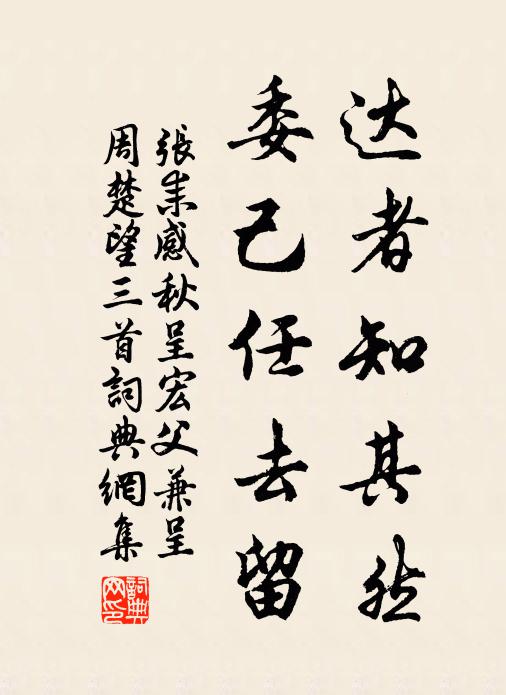 达者知其然
委己任去留
張耒感秋呈宏父兼呈
周楚望三首詞典網集
詞典
网印